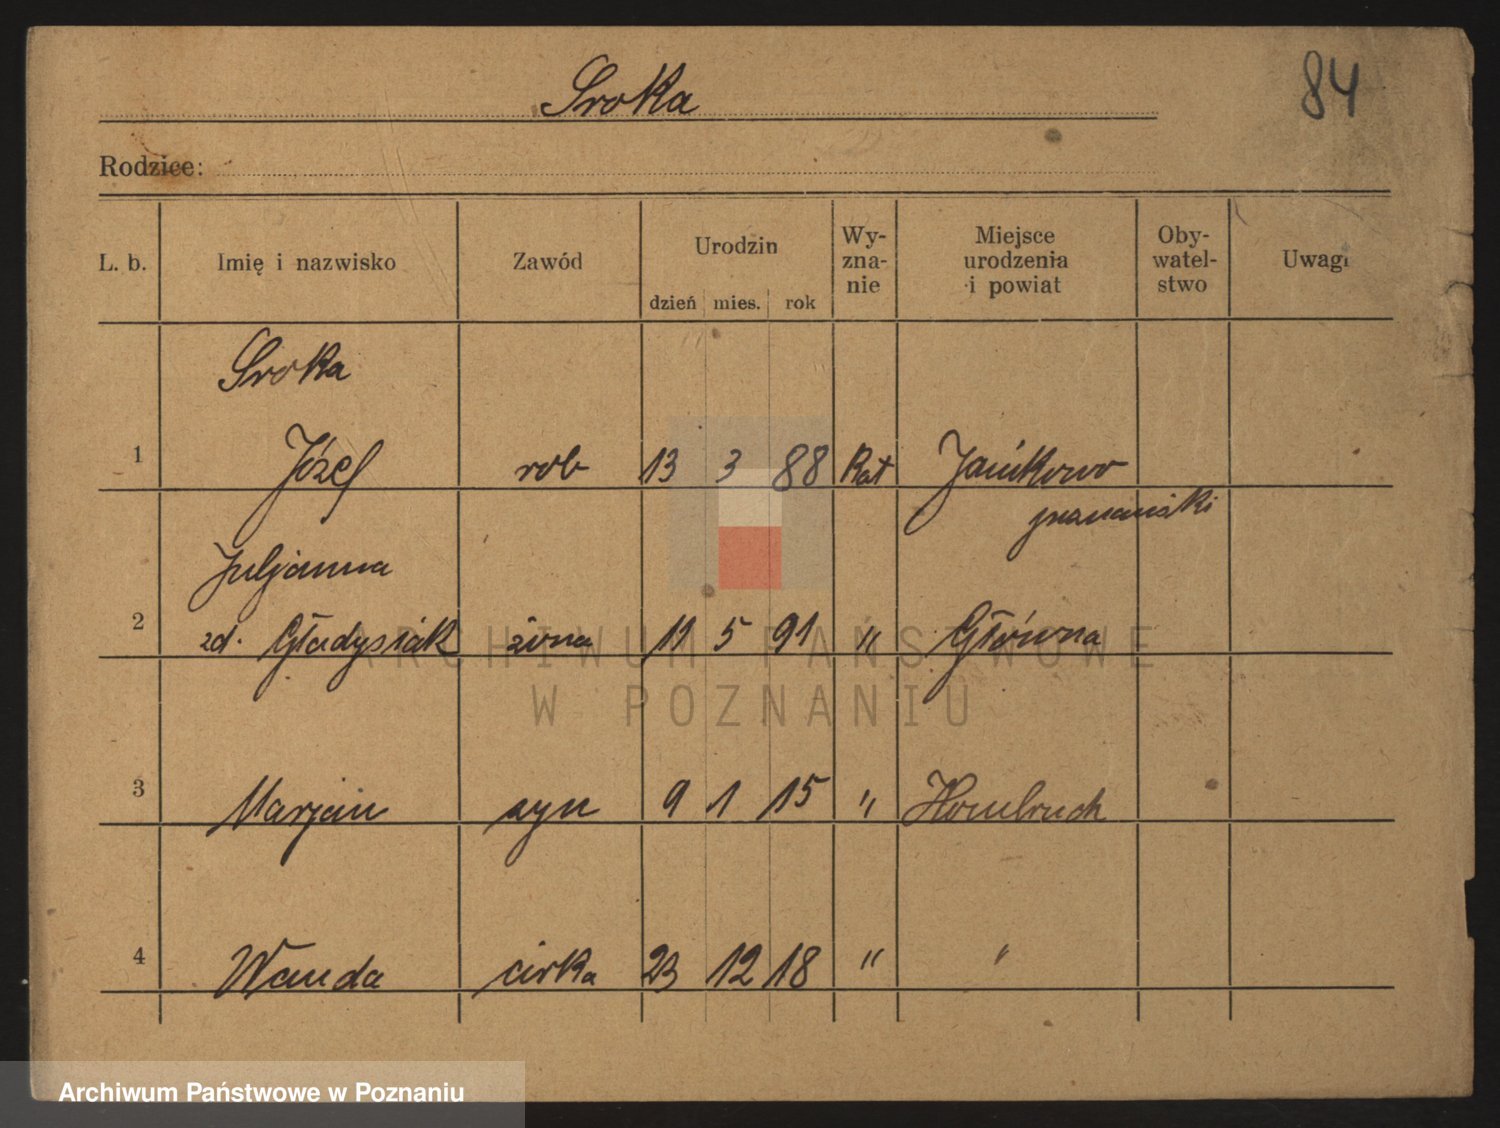 84
Sroka
Rodzice:
L. b. Imię i nazwisko Zawód Urodzin dzień mies. rok Wy-zna-nie Miejsce urodzenia i powiat Oby-watel-stwo Uwagi
Sroka
1 Józef rob 13 3 88 Kat Janikowo
poznański
Juljanna
2 zd. Gładysiak żona 11 5 91 " Główna
3 Marjan syn 9 1 15 " Hombruch
4 Wanda córka 23 12 18 " "
ARCHIWUM PAŃSTWOWE
W POZNANIU
Archiwum Państwowe w Poznaniu